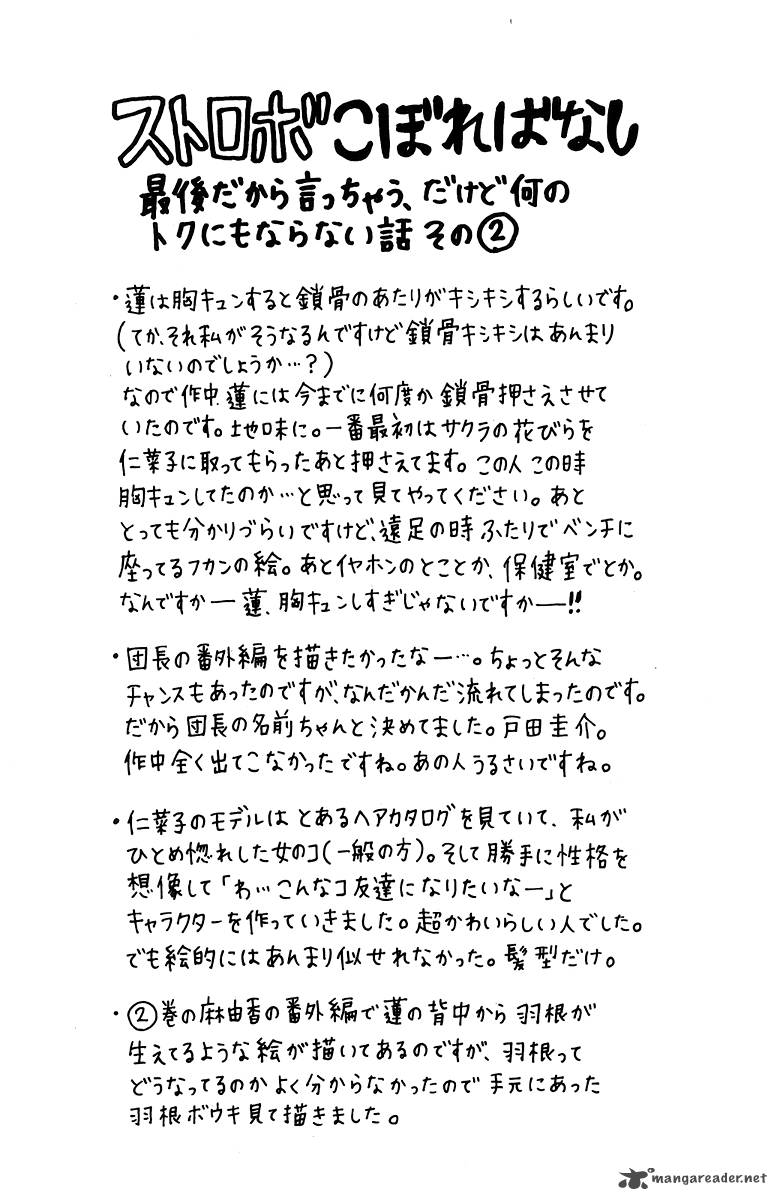 ストロボこぼればなし
最後だから言っちゃう、だけど何の
トクにもならない話 その②
・蓮は胸キュンすると鎖骨のあたりがキシキシするらしいです。
(てか、それ私がそうなるんですけど鎖骨キシキシはあんまり
いないのでしょうか…?)
なので作中、蓮には今までに何度か鎖骨押さえさせて
いたのです。地味に。一番最初はサクラの花びらを
仁菜子に取ってもらったあと押さえてます。この人この時
胸キュンしてたのか…と思って見てやってください。あと
とっても分かりづらいですけど、遠足の時ふたりでベンチに
座ってるフカンの絵。あとイヤホンのとことか、保健室でとか。
なんですかー蓮、胸キュンしすぎじゃないですかー!!
・団長の番外編を描きたかったなー…。ちょっとそんな
チャンスもあったのですが、なんだかんだ流れてしまったのです。
だから団長の名前ちゃんと決めてました。戸田圭介。
作中全く出てこなかったですね。あの人うるさいですね。
・仁菜子のモデルは とあるヘアカタログを見ていて、私が
ひとめ惚れした女のコ(一般の方)。そして勝手に性格を
想像して「わぃこんなコ友達になりたいなー」と
キャラクターを作っていきました。超かわいらしい人でした。
でも絵的にはあんまり似せれなかった。髪型だけ。
・②巻の麻由香の番外編で蓮の背中から羽根が
生えてるような絵が描いてあるのですが、羽根って
どうなってるのかよく分からなかったので手元にあった
羽根ボウキ見て描きました。
mangareader.net